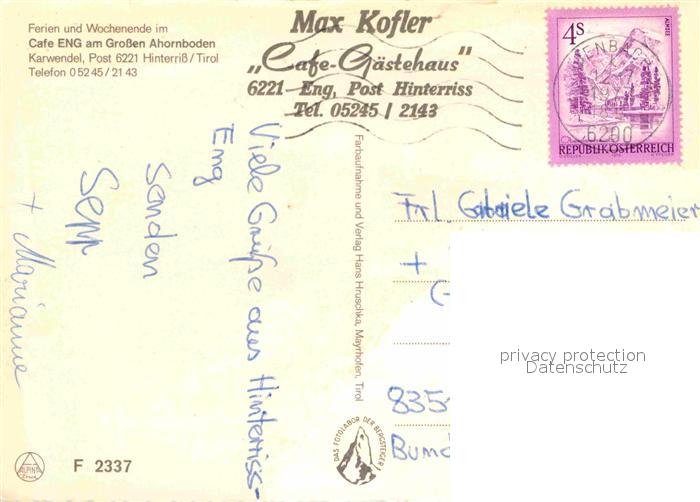 Ferien und Wochenende im
Cafe ENG am Großen Ahornboden
Karwendel, Post 6221 Hinterriß/Tirol
Telefon 05245/2143
Max Kofler
„Cafe-Gästehaus"
6221 Eng, Post Hinterriss
Tel. 05245 / 2143
4S
ALMSEE
JENBACH
6200
REPUBLIK ÖSTERREICH
Viele Grüße aus Hinterriss-
Eng
Senden
Sepp
+ Marianne
Farbaufnahme und Verlag Hans Hruschka, Mayrhofen, Tirol
Frl. Gabriele Grabmeier
+
G
835
Bund
privacy protection
Datenschutz
DAS FOTOLABOR DER BERGSTEIGER
ALPINA
Druck
F 2337